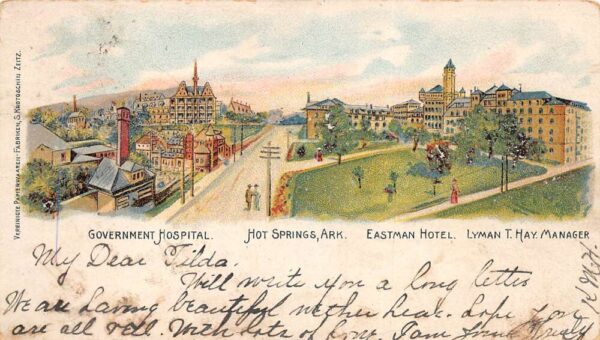 VEREINIGTE PAPIERWAAREN-FABRIKEN, S. KROTOSCHIN ZEITZ.
GOVERNMENT HOSPITAL. HOT SPRINGS, ARK. EASTMAN HOTEL. LYMAN T. HAY. MANAGER
My Dear Tilda.
Will write you a long letter
We are having beautiful wether hear. Hope you
are all well. With lots of love. I am yours Truly